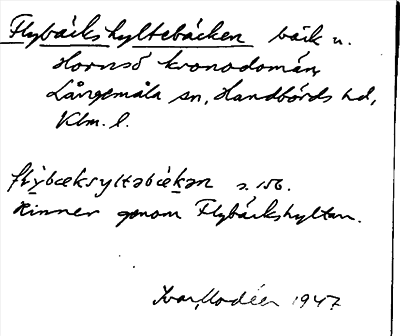 Flybäckshyltebäcken bäck u.
Hornsö kronodomän,
Långemåla sn, Handbörds hd,
Klm. l.
fly̱bæksyltəbæḵən s. 156.
Rinner genom Flybäckshyltan.
Ivar Modéer 1947